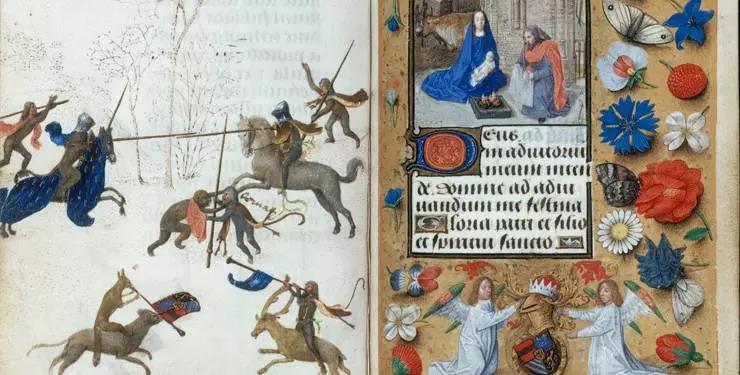 Deus
in adiutoriu
meum inten
de. Domine ad adiu
uandum me festina
Gloria patri et filio
et spiritui sancto